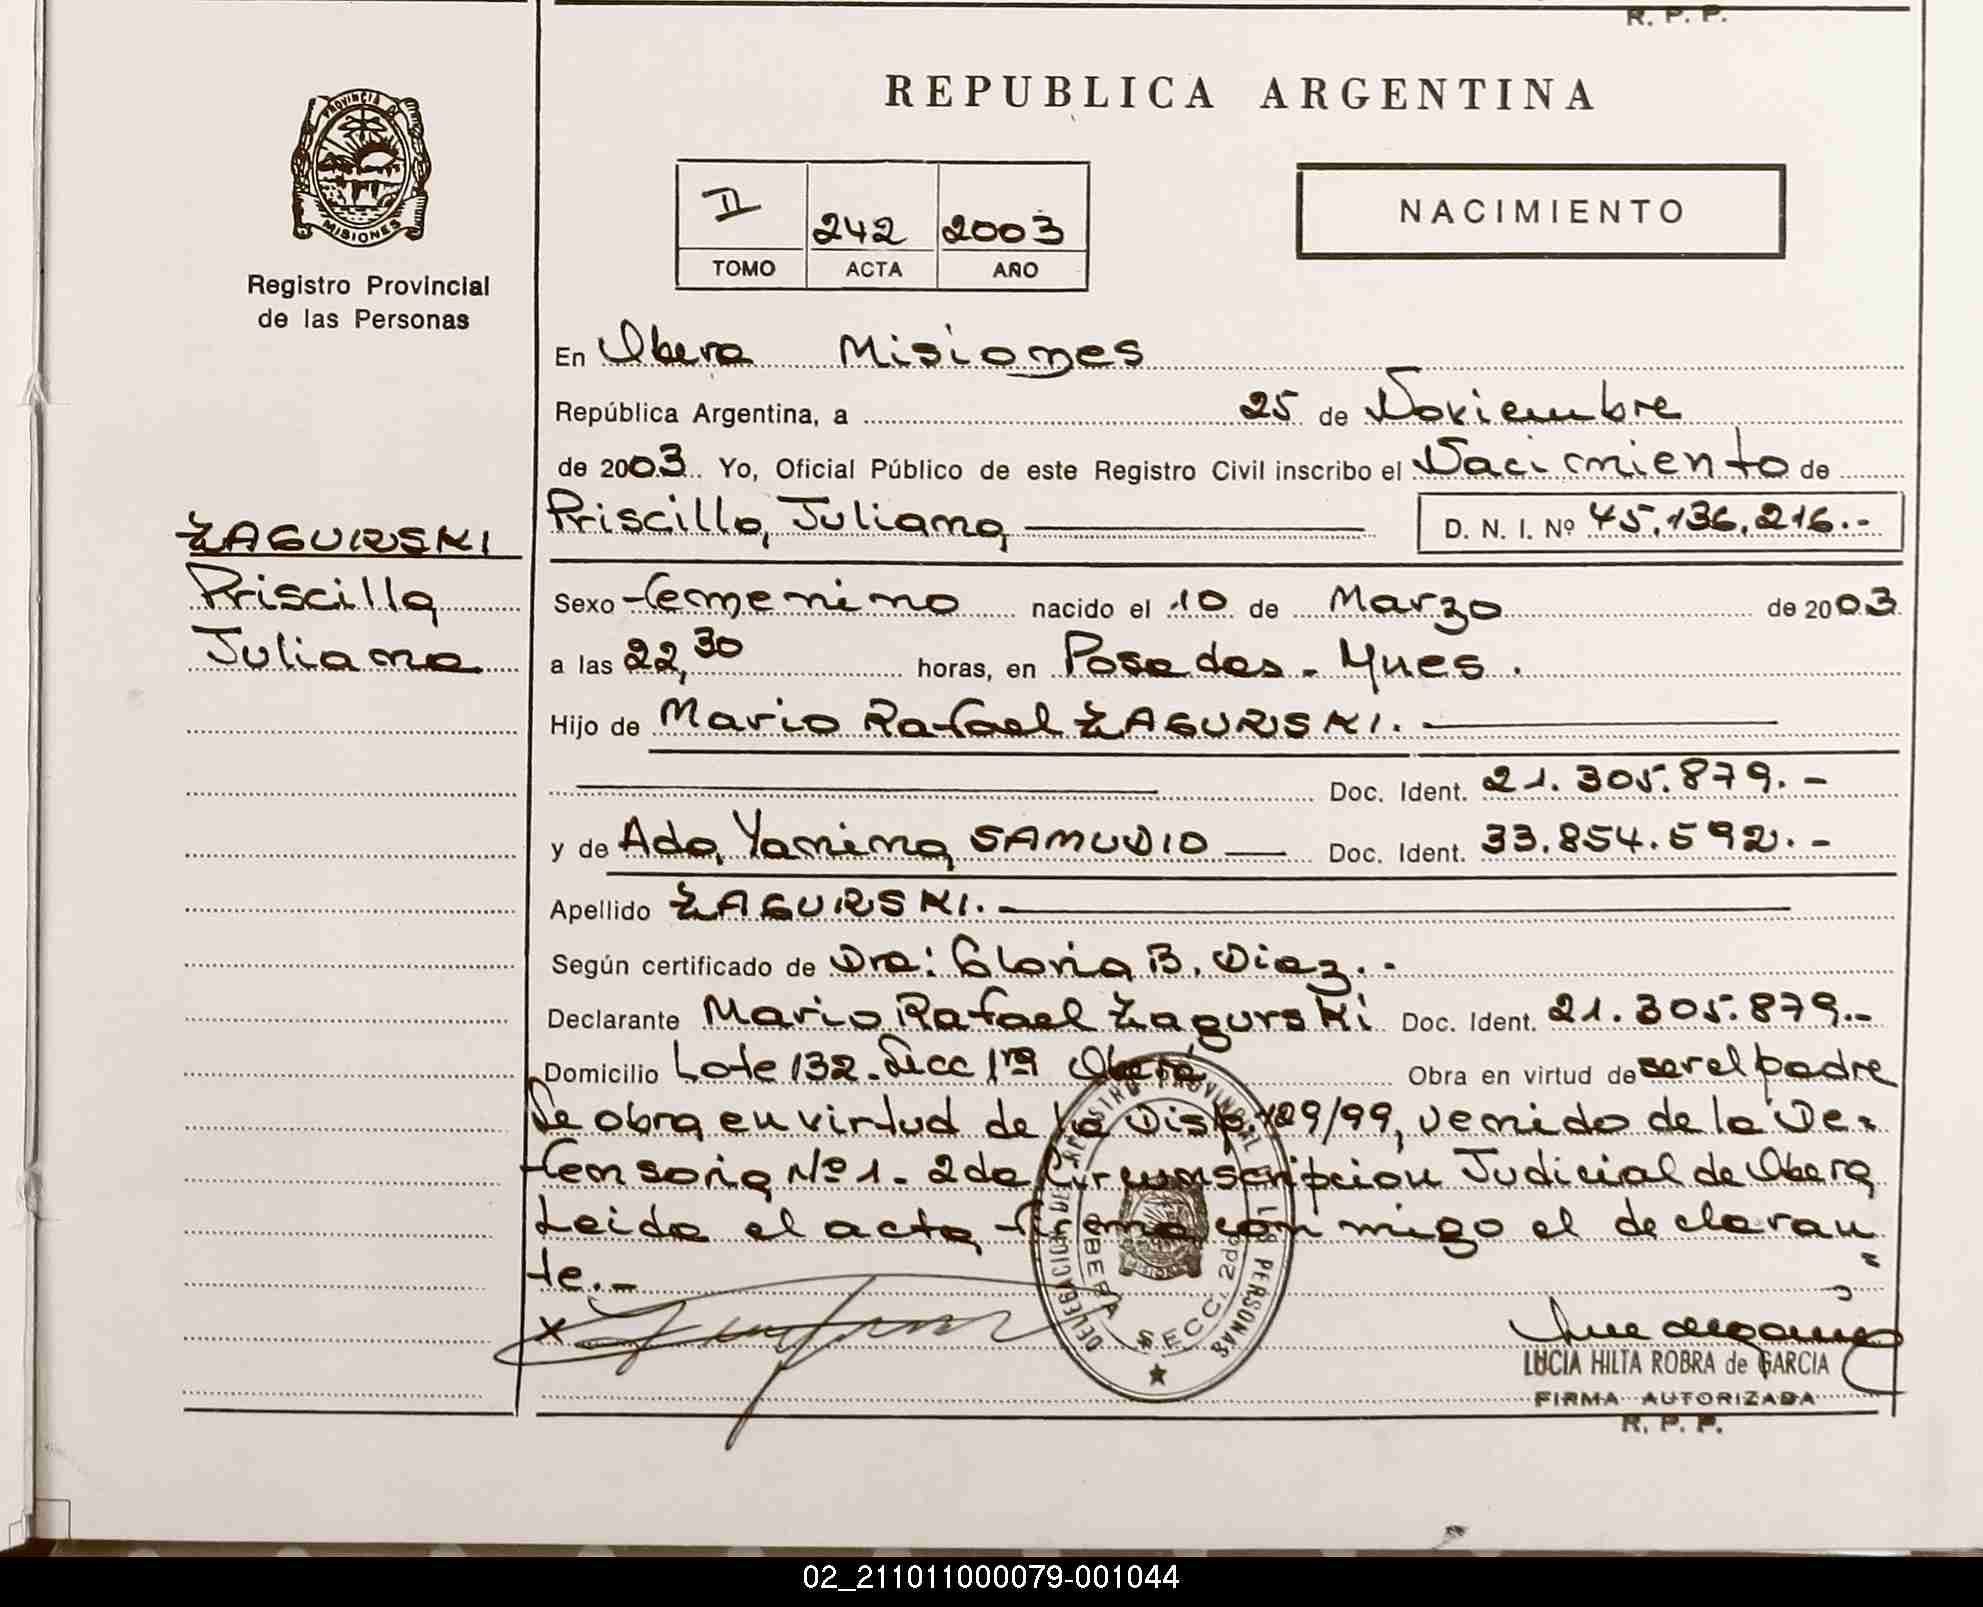 R. P. P.
REPUBLICA ARGENTINA
PROVINCIA DE
MISIONES
Registro Provincial
de las Personas
II 242 2003
TOMO ACTA AÑO
NACIMIENTO
En Obera Misiones
República Argentina, a 25 de Noviembre
de 2003. Yo, Oficial Público de este Registro Civil inscribo el Nacimiento de
Priscilla, Juliana D. N. I. Nº 45.136.216.-
ZAGURSKI
Priscilla
Juliana
Sexo femenino nacido el 10 de Marzo de 2003
a las 22,30 horas, en Posadas - Mnes.
Hijo de Mario Rafael ZAGURSKI.
Doc. Ident. 21.305.879.-
y de Ada, Yanina SAMUDIO Doc. Ident. 33.854.592.-
Apellido ZAGURSKI.
Según certificado de Dra: Gloria B. Diaz.-
Declarante Mario Rafael Zagurski Doc. Ident. 21.305.879.-
Domicilio Lote 132. Secc 1ra Oberá Obra en virtud de ser el padre
Se obra en virtud de la Disp. 129/99, venido de la De-
fensoria Nº 1. 2da Circunscripcion Judicial de Obera
Leida el acta firma conmigo el declaran
te.-
x
DELEGACION DE REGISTRO PROVINCIAL DE LAS PERSONAS
OBERA SECC. 2da
MISIONES
LUCIA HILTA ROBRA de GARCIA
FIRMA AUTORIZADA
R. P. P.
02_211011000079-001044